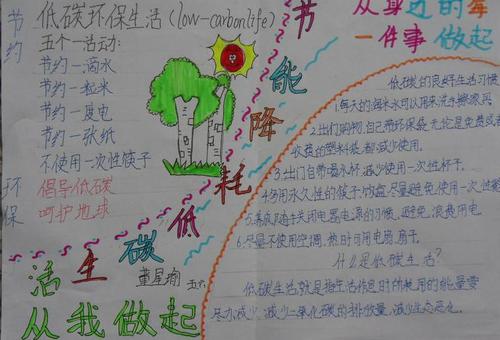 节约
环保
低碳环保生活(low-carbonlife)
五个一活动:
节约一滴水
节约一粒米
节约一度电
节约一张纸
不使用一次性筷子
倡导低碳
呵护地球
节能降耗
低碳生活
从我做起
董星瑜
从身边的每
一件事做起
低碳的良好生活习惯
1.每天的淘米水可以用来洗手擦家具
2.出门购物,自己带环保袋,无论是免费或者
收费的塑料袋都减少使用.
3.出门自带喝水杯,减少使用一次性杯子.
4.多用永久性的筷子,饭盒,尽量避免使用一次性
5.养成随手关闭电器电源的习惯,避免浪费用电.
6.尽量不使用空调,热时可用电扇扇子.
什么是低碳生活?
低碳生活就是指生活作息时所耗用的能量要
尽力减少,减少二氧化碳的排放量,减少生态恶化.